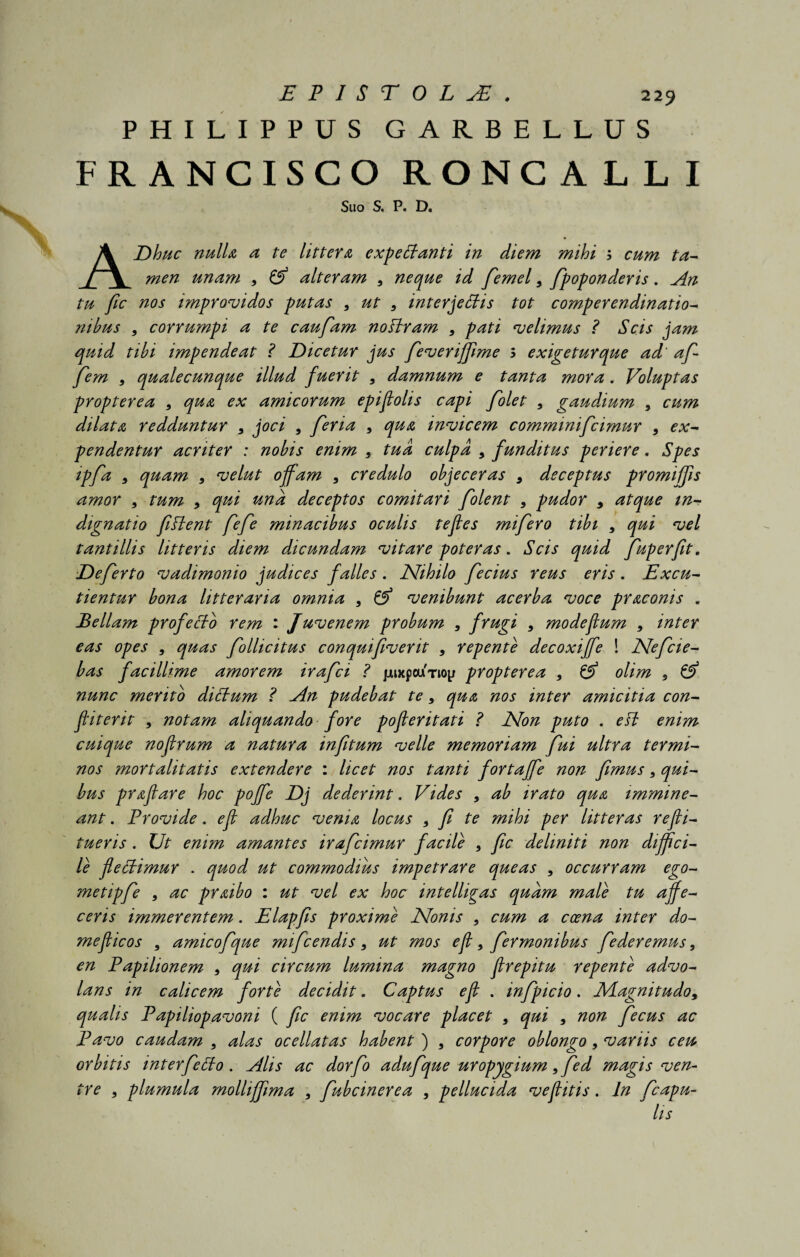 EPISTOLÆ. 229
PHILIPPUS GARBELLUS
FRANCISCO RONCALLI
Suo S. P. D.
ADhuc nullæ a te litteræ expectanti in diem mihi ; cum ta-
men unam , & alteram , neque id ſemel, ſpoponderis. An
tu ſic nos improvidos putas , ut , interjectis tot comperendinatio-
nibus , corrumpi a te cauſam noſtram , pati velimus ? Scis jam
quid tibi impendeat ? Dicetur jus ſeveriſſime ; exigeturque ad aſ-
ſem , qualecunque illud fuerit , damnum e tanta mora. Voluptas
propterea , quæ ex amicorum epiſtolis capi ſolet , gaudium , cum
dilatæ redduntur , joci , ſeria , quæ invicem comminiſcimur , ex-
pendentur acriter : nobis enim , tuâ culpâ , funditus periere. Spes
ipſa , quam , velut offam , credulo objeceras , deceptus promiſſis
amor , tum , qui unà deceptos comitari ſolent , pudor , atque in-
dignatio ſiſtent ſeſe minacibus oculis teſtes miſero tibi , qui vel
tantillis litteris diem dicundam vitare poteras. Scis quid ſuperſit.
Deſerto vadimonio judices falles. Nihilo ſecius reus eris. Excu-
tientur bona litteraria omnia , & venibunt acerba voce præconis .
Bellam profectò rem : Juvenem probum , frugi , modeſtum , inter
eas opes , quas ſollicitus conquiſiverit , repentè decoxiſſe ! Neſcie-
bas facillime amorem iraſci ? μικραίτιον propterea , & olim , &
nunc meritò dictum ? An pudebat te , quæ nos inter amicitia con-
ſtiterit , notam aliquando fore poſteritati ? Non puto . eſt enim
cuique noſtrum a natura inſitum velle memoriam ſui ultra termi-
nos mortalitatis extendere : licet nos tanti fortaſſe non ſimus , qui-
bus præſtare hoc poſſe Dj dederint. Vides , ab irato quæ immine-
ant. Provide. eſt adhuc veniæ locus , ſi te mihi per litteras reſti-
tueris. Ut enim amantes iraſcimur facilè , ſic deliniti non diffici-
lè flectimur . quod ut commodiùs impetrare queas , occurram ego-
metipſe , ac præibo : ut vel ex hoc intelligas quàm malè tu affe-
ceris immerentem. Elapſis proximè Nonis , cum a cœna inter do-
meſticos , amicoſque miſcendis , ut mos eſt , ſermonibus ſederemus,
en Papilionem , qui circum lumina magno ſtrepitu repentè advo-
lans in calicem fortè decidit. Captus eſt . inſpicio. Magnitudo,
qualis Papiliopavoni ( ſic enim vocare placet , qui , non ſecus ac
Pavo caudam , alas ocellatas habent ) , corpore oblongo , variis ceu
orbitis interſecto. Alis ac dorſo aduſque uropygium , ſed magis ven-
tre , plumula molliſſima , ſubcinerea , pellucida veſtitis. In ſcapu-
lis